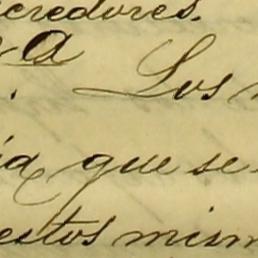 creedores.
a
. Los
ia que se
estos mism